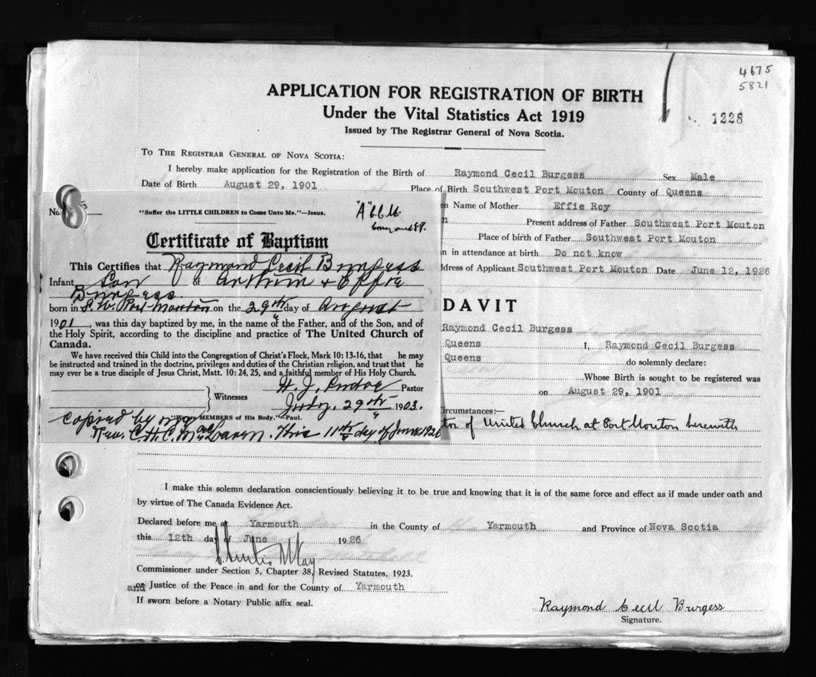 4675
5821
1228
APPLICATION FOR REGISTRATION OF BIRTH
Under the Vital Statistics Act 1919
Issued by The Registrar General of Nova Scotia.
TO THE REGISTRAR GENERAL OF NOVA SCOTIA:
I hereby make application for the Registration of the Birth of Raymond Cecil Burgess Sex Male
Date of Birth August 29, 1901 Place of Birth Southwest Port Mouton County of Queens
n Name of Mother Effie Roy
Present address of Father Southwest Port Mouton
Place of birth of Father Southwest Port Mouton
n in attendance at birth Do not know
ddress of Applicant Southwest Port Mouton Date June 12, 1926
No.
"Suffer the LITTLE CHILDREN to Come Unto Me."—Jesus.
Certificate of Baptism
This Certifies that Raymond Cecil Burgess
Infant Son of Arthur + Effie
Burgess
born in S.W. Port Mouton on the 29th day of August
1901, was this day baptized by me, in the name of the Father, and of the Son, and of
the Holy Spirit, according to the discipline and practice of The United Church of
Canada.
We have received this Child into the Congregation of Christ's Flock, Mark 10:13-16, that he may
be instructed and trained in the doctrine, privileges and duties of the Christian religion, and trust that he
may ever be a true disciple of Jesus Christ, Matt. 10: 24, 25, and a faithful member of His Holy Church.
Pastor
Witnesses
29th 1903.
"We are MEMBERS of His Body."—Paul.
copied by
Rev. C.H.C. MacLaren. This 11th day of June 1926
DAVIT
Raymond Cecil Burgess
Queens I, Raymond Cecil Burgess
Queens do solemnly declare:
Whose Birth is sought to be registered was
on August 29, 1901
ircumstances:—
of United Church at Port Mouton herewith
I make this solemn declaration conscientiously believing it to be true and knowing that it is of the same force and effect as if made under oath and
by virtue of The Canada Evidence Act.
Declared before me at Yarmouth in the County of Yarmouth and Province of Nova Scotia
this 12th day of June 1926
Commissioner under Section 5, Chapter 38, Revised Statutes, 1923.
and or Justice of the Peace in and for the County of Yarmouth
If sworn before a Notary Public affix seal.
Raymond Cecil Burgess
Signature.